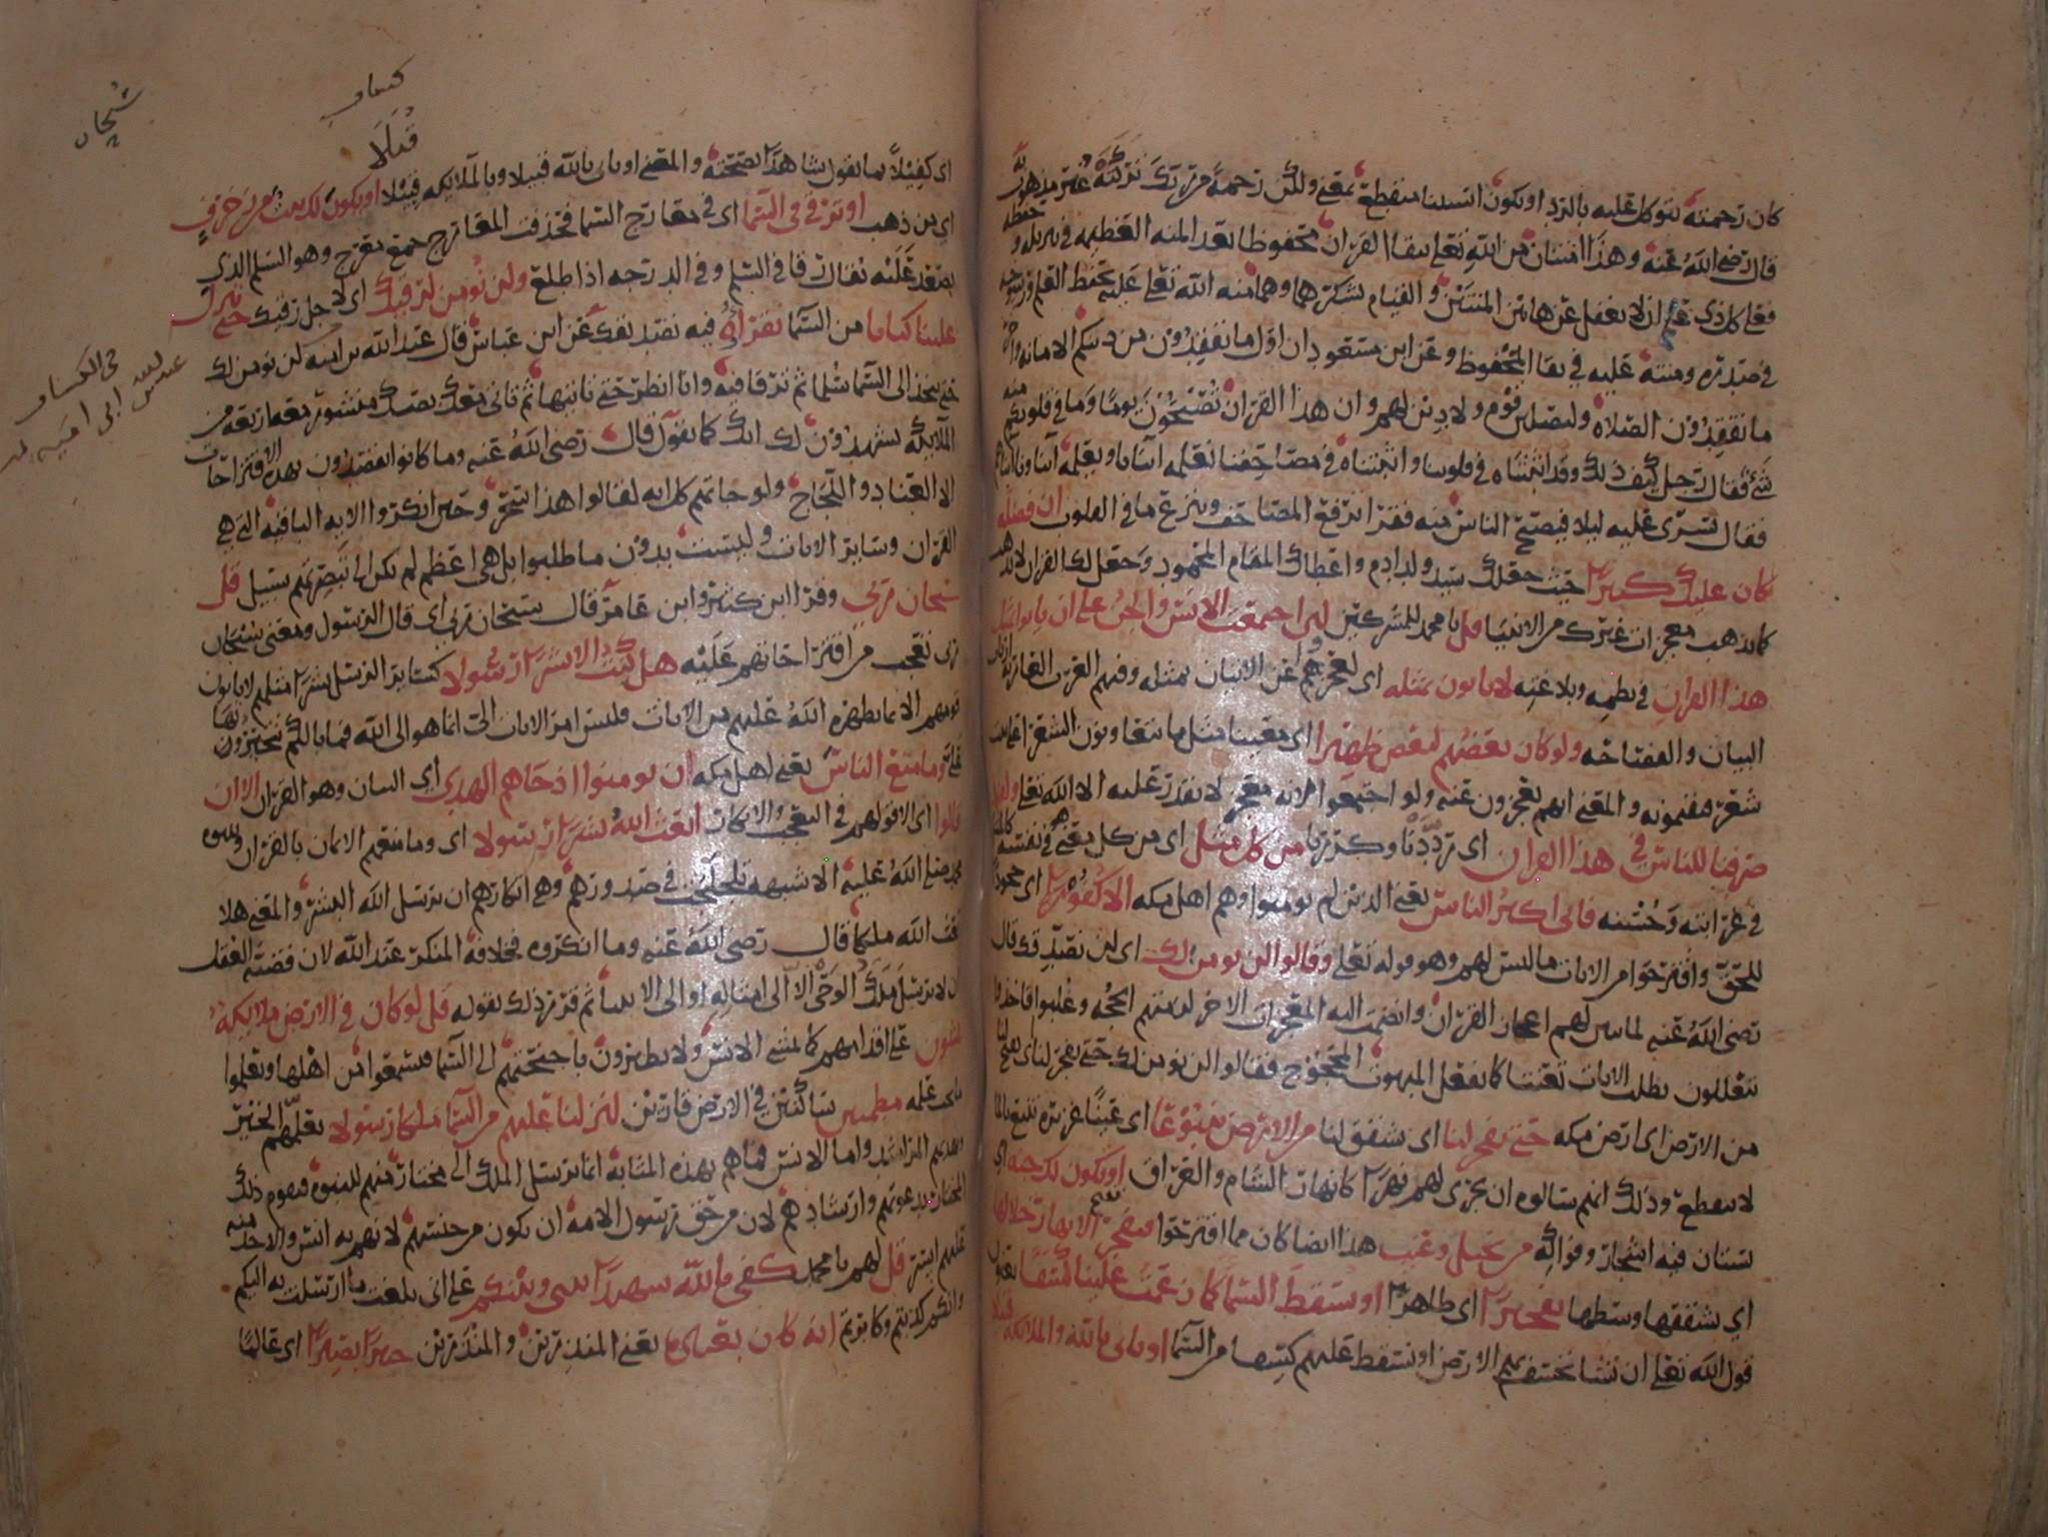 كان رحمته تتوكل عليه بالرد او يكون استثنا منقطعا بمعنى ولكن رحمة من ربك تركته غير مذهوب
قال رضي الله عنه وهذا امتنان من الله تعالى ببقا القرآن محفوظا بعد المنه العظيمه في تنزيله و
فعلى كل ذي علم ان لا يغفل عن هاتين المنتين والقيام بشكرهما وهما منه الله تعالى عليه بحفظ العلم ورسوخه
في صدره ومنته عليه في بقا المحفوظ وعن ابن مسعود ان اول ما تفقدون من دينكم الامانه واخر
ما تفقدون الصلاه وليصلين قوم ولا دين لهم وان هذا القرآن تصبحون يوما وما في قلوبكم منه
شئ فقال رجل كيف ذلك وقد اثبتناه في قلوبنا واثبتناه في مصاحفنا نعلمه ابنانا ويعلمه ابناونا ابناهم
فقال يسرى عليه ليلا فيصبح الناس منه فقرا ترفع المصاحف وينزع ما في القلوب ان فضله
كان عليك كبيرا حيث جعلك سيد ولد ادم واعطاك المقام المحمود وجعل لك القران لا يذهب
كما ذهب معجزات غيرك من الانبيا قل يا محمد للمشركين لين اجتمعت الانس والجن على ان ياتوا بمثل
هذا القران في نظمه وبلاغته لا ياتون بمثله اي لعجزهم عن الاتيان بمثله وفيهم العرب العاربة ارباب
البيان والفصاحه ولو كان بعضهم لبعض ظهيرا اي معينا مثل ما يتعاونون الشعرا على بيت
شعر فيقيمونه والمعنى انهم يعجزون عنه ولو اجتمعوا لانه معجز لا يقدر عليه الا الله تعالى ولقد
صرفنا للناس في هذا القران اي رددنا وكررنا من كل مثل اي من كل معنى هو في نفسه كالمثل
في غرابته وحسنه فابى اكثر الناس يعني الذين لم يومنوا وهم اهل مكه الا كفورا اي جحودا
للحق واقترحوا من الايات ما ليس لهم وهو قوله تعالى وقالوا لن نومن لك اي لن نصدقك قال
رضي الله عنه لما تبين لهم اعجاز القرآن وانضمت اليه المعجزات الاخر لزمتهم الحجه وغلبوا فاخذوا
يتعللون بطلب الايات تعنتا كما يفعل المبهوت المحجوج فقالوا لن نومن لك حتى تفجر لنا
من الارض اي ارض مكه حتى تفجر لنا اي تشقق لنا من الارض ينبوعا اي عينا غزيره تنبع بالما
لا ينقطع وذلك انهم سالوه ان يجري لهم نهرا كانهار الشام والعراق او تكون لك جنه اي
بستان فيه اشجار وفواكه من نخيل وعنب هذا ايضا كان مما اقترحوا فتفجر الانهار خلالها
اي تشققها وسطها تفجيرا اي ظاهرا او تسقط السما كما زعمت علينا كسفا يعنون
قول الله تعالى ان نشا نخسف بهم الارض او نسقط عليهم كسفا من السما او تاتي بالله والملايكه قبيلا
كشاف
قبلا
سبحان
اي كفيلا بما تقول شاهدا بصحته والمعنى او تاتي بالله قبيلا وبالملايكه قبيلا او يكون لك بيت من زخرف
اي من ذهب او ترقى في السما اي في معارج السما فحذف المعارج جمع معرج وهو السلم الذي
يصعد عليه يقال رقا في السلم وفي الدرجه اذا طلع ولن نومن لرقيك اي لاجل رقيك حتى تنزل
علينا كتابا من السما نقراه فيه تصديقك عن ابن عباس قال عبد الله بن ابي اميه لن نومن لك
حتى تتخذ الى السما سلما ثم ترقا فيه وانا انظر حتى تاتيها ثم تاتي معك بصك منشور معه اربعة من
الملايكه يشهدون لك انك كما تقول قال رضي الله عنه وما كانوا يقصدون بهذه الاقتراحات
الا العناد واللجاج ولو جاتهم كل ايه لقالوا هذا سحر وحين انكروا الايه الباقيه التي هي
القرآن وساير الايات وليست بدون ما طلبوا بل هي اعظم لم يكن الى تبصرتهم سبيل قل
سبحان ربي وقرا ابن كثير وابن عامر قال سبحان ربي اي قال الرسول ومعنى سبحان
ربي تعجب من اقتراحاتهم عليه هل كنت الا بشرا رسولا كساير الرسل بشرا مثلهم لا ياتون
قومهم الا بما يظهره الله عليهم من الايات فليس امر الايات الي انما هو الى الله فما بالكم تتخيرونها
علي وما منع الناس يعني اهل مكه ان يومنوا اذ جاهم الهدى اي البيان وهو القرآن الا ان
قالوا اي الا قولهم في التعجب والانكار ابعث الله بشرا رسولا اي وما منعهم الايمان بالقرآن وبنبوه
محمد صلى الله عليه الا شبهه تلجلجت في صدورهم وهي انكارهم ان يرسل الله البشر والمعنى هلا
بعث الله ملكا قال رضي الله عنه وما انكروه فخلافه المنكر عند الله لان قضية العقل
ان لا يرسل ملك الوحي الا الى امثاله او الى الانبيا ثم قرر ذلك بقوله قل لو كان في الارض ملايكة
يمشون على اقدامهم كما يمشي الانس ولا يطيرون باجنحتهم الى السما فيسمعوا من اهلها ويعلموا
ما يجب علمه مطمينين ساكنين في الارض قارين لنزلنا عليهم من السما ملكا رسولا يعلمهم الخير
ويهديهم المراشد واما الانس فما هم بهذه المثابه انما يرسل الملك الى مختار منهم للنبوه فيقوم ذلك
المختار بدعوتهم وارشادهم لان من حق رسول الامه ان يكون من جنسهم لانهم به انس والاخذ منه
عليهم ايسر قل لهم يا محمد كفى بالله شهيدا بيني وبينكم على اني بلغت ما ارسلت به اليكم
وانكم كذبتم وكابرتم انه كان بعباده يعني المنذرين والمنذرين خبيرا بصيرا اي عالما
في الكشاف
عبد الله بن ابي اميه